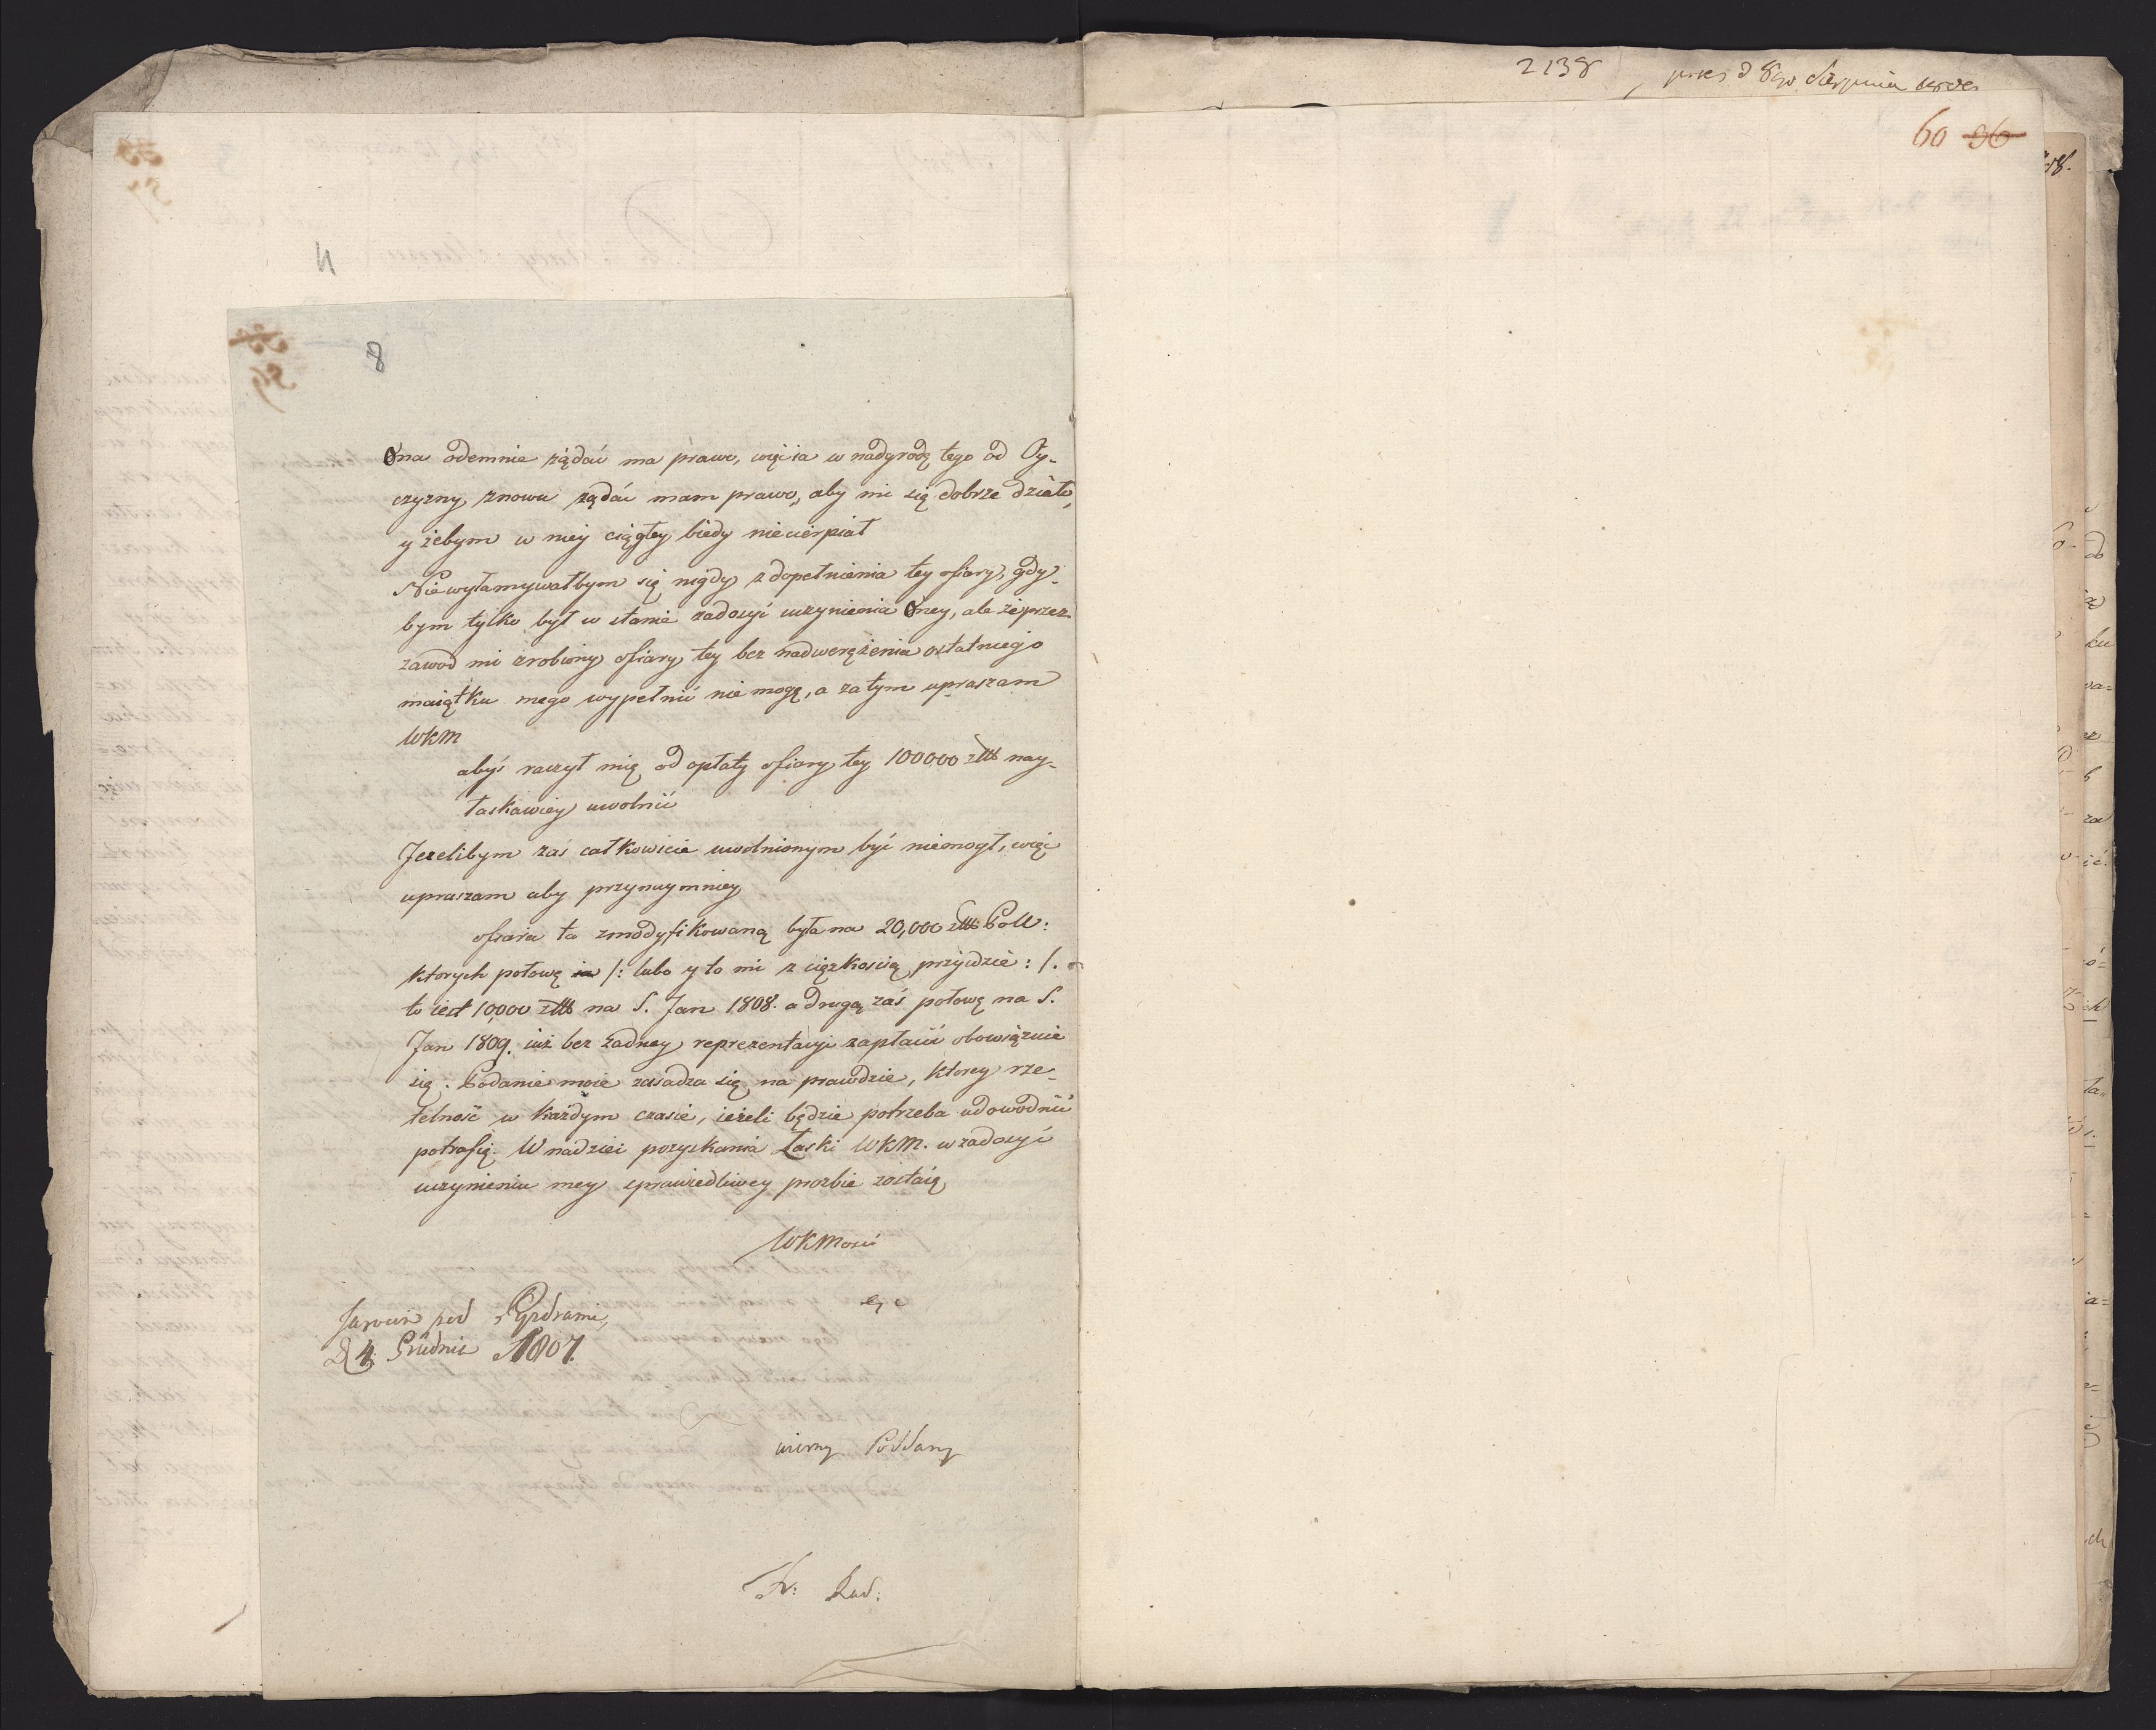 2138
60 96
11
8
Ona odemnie żądać ma prawo, więc ia w nadgrodę tego od Oy-
czyzny znowu żądać mam prawo, aby mi się dobrze działo,
y żebym w niey ciągłey biedy niecierpiał
Niewyłamywałbym się nigdy z dopełnienia tey ofiary, gdy-
bym tylko był w stanie zadosyć uczynienia Oney, ale że przez
zawod mi zrobiony ofiary tey bez nadwerężenia ostatniego
maiątku mego wypełnić nie mogę, a zatym upraszam
WKM
abyś raczył mię od opłaty ofiary tey 100000 złł nay-
łaskawiey uwolnić
Jeżelibym zaś całkowicie uwolnionym być niemogł, więc
upraszam aby przynaymniey
ofiara ta zmodyfikowaną była na 20,000 złł Poll:
ktorych połowę ia /: lubo y to mi z ciężkością przyidzie :/.
to iest 10,000 złł na S. Jan 1808. a drugą zaś połowę na S.
Jan 1809. iuż bez żadney reprezentacyi zapłacić obowiązuie
się. Podanie moie zasadza się na prawdzie, ktorey rze-
telność w każdym czasie, ieżeli będzie potrzeba udowodnić
potrafię. W nadziei pozyskania Łaski WKM. w zadosyć
uczynieniu mey sprawiedliwey prozbie zostaię
WKMosci
Jarocin pod Pyzdrami,
D 4 Grudnia 1807.
wierny Poddany